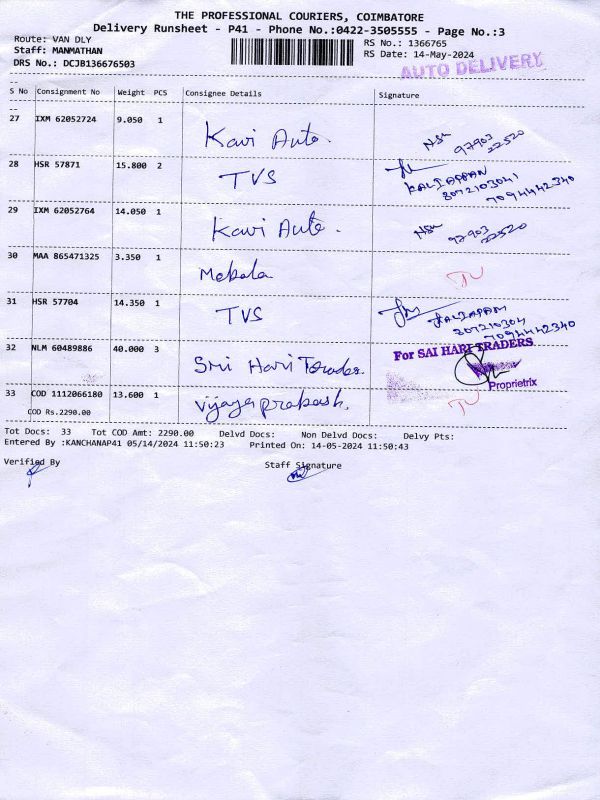 THE PROFESSIONAL COURIERS, COIMBATORE
Delivery Runsheet - P41 - Phone No.:0422-3505555 - Page No.:3
Route: VAN DLY
RS No.: 1366765
Staff: MANMATHAN
RS Date: 14-May-2024
DRS No.: DCJB136676503
AUTO DELIVERY
S No Consignment No Weight PCS Consignee Details Signature
27 IXM 62052724 9.050 1 Kavi Auto. 97903 22520
28 HSR 57871 15.800 2 TVS KALIAPPAN 8072103041 7094442340
29 IXM 62052764 14.050 1 Kavi Auto. 97903 22520
30 MAA 865471325 3.350 1 Mekala
31 HSR 57704 14.350 1 TVS 7094442340
32 NLM 60489886 40.000 3 Sri Hari Traders. For SAI HARI TRADERS
Proprietrix
33 COD 1112066180 13.600 1 Vijayaprakash.
COD Rs.2290.00
Tot Docs: 33 Tot COD Amt: 2290.00 Delvd Docs: Non Delvd Docs: Delvy Pts:
Entered By :KANCHANAP41 05/14/2024 11:50:23 Printed On: 14-05-2024 11:50:43
Verified By Staff Signature